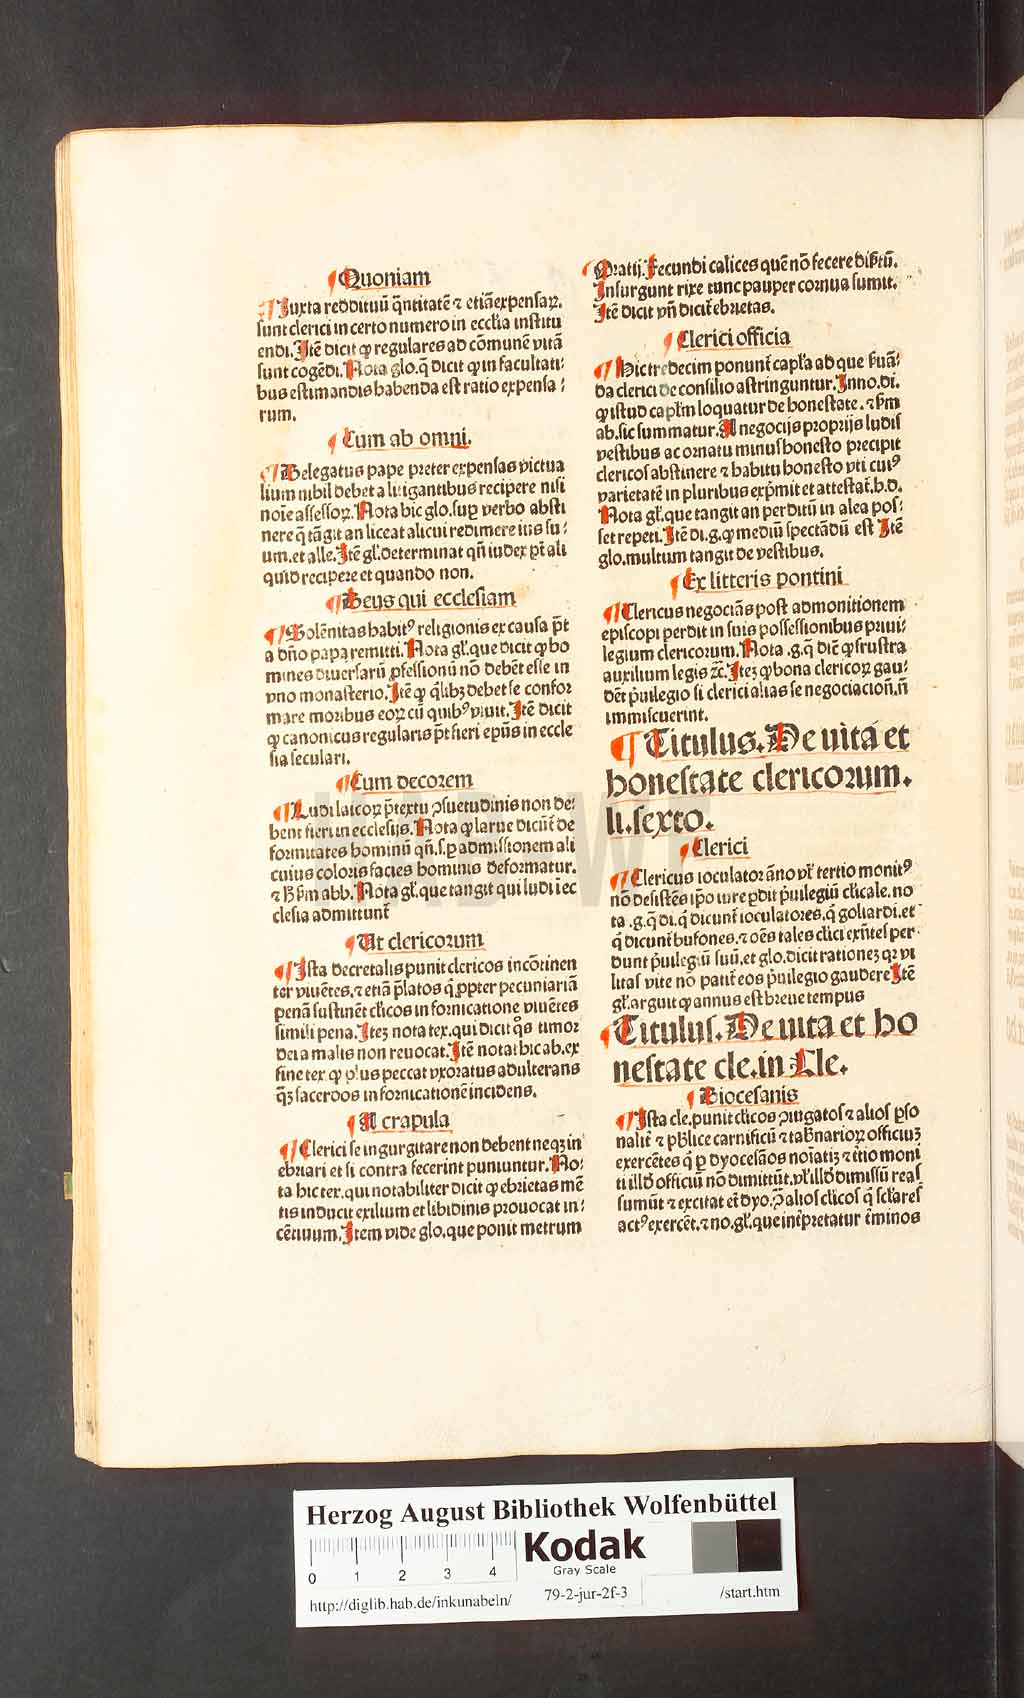 ¶ Quoniam
¶ Iuxta reddituū q̄ntitatē ⁊ etiā expensaꝝ.
sunt clerici in certo numero in ecclīa institu
endi. Itē dicit ꝙ regulares ad cōmunē vitā
sunt cogēdi. Nota glo. q̄ dicit ꝙ in facultati-
bus estimandis habenda est ratio expensa-
rum.
¶ Cum ab omni.
¶ Delegatus pape preter expensas victua
lium nihil debet a litigantibus recipere nisi
noīe assessoꝝ. Nota hic glo. suꝑ verbo absti
nere q̄ tāgit an liceat alicui redimere ius su-
um. et alle. Itē gl̄. determinat qn̄ iudex p̄t ali
quid recipere et quando non.
¶ Deus qui ecclesiam
¶ Solēnitas habitꝰ religionis ex causa p̄t
a dn̄o papa remitti. Nota gl̄. que dicit ꝙ ho
mines diuersarū ꝓfessionū nō debēt esse in
vno monasterio. Itē ꝙ q̄libꝫ debet se confor
mare moribus eoꝝ cū quibꝰ viuit. Itē dicit
ꝙ canonicus regularis p̄t fieri ep̄us in eccle
sia seculari.
¶ Cum decorem
¶ Ludi laicoꝝ p̄textu ꝯsuetudinis non de-
bent fieri in ecclesijs. Nota ꝙ larue dicūt̄ de
formitates hominū qn̄. s. ꝑ admissionem ali
cuius coloris facies hominis deformatur.
⁊ h̄ Fm abb. Nota gl̄. que tangit qui ludi i ec
clesia admittunt̄
¶ Ut clericorum
¶ Ista decretalis punit clericos incōtinen
ter viuētes. ⁊ etiā p̄latos q̄ ꝓpter pecuniariā
penā sustinēt cl̄icos in fornicatione viuētes
simili pena. Iteꝫ nota tex. qui dicit q̄s timor
dei a malis non reuocat. Itē notat̄ hic ab. ex
fine tex ꝙ plus peccat vxoratus adulterans
q̄ꝫ sacerdos in fornicationē incidens.
¶ A crapula
¶ Clerici se ingurgitare non debent neqꝫ in
ebriari et si contra fecerint puniuntur. No-
ta hic tex. qui notabiliter dicit ꝙ ebrietas mē
tis inducit exilium et libidinis prouocat in-
cēdiuum. Item vide glo. que ponit metrum
Oratij. Fecundi calices quē nō fecere disertū.
Insurgunt rixe tunc pauper cornua sumit.
Itē dicit vn̄ dicit̄ ebrietas.
¶ Clerici officia
¶ Hic tredecim ponunt̄ capl̄a ad que Fuā-
da clerici de consilio astringuntur. Inno. di.
ꝙ istud capl̄m loquatur de honestate. ⁊ Fm
ab. sic summatur. A negocijs proprijs ludis
vestibus ac ornatu minus honesto precipit
clericos abstinere ⁊ habitu honesto vti cuiꝰ
varietatē in pluribus exp̄mit et attestat̄. h. d.
Nota gl̄. que tangit an perditū in alea pos-
set repeti. Itē di. g. ꝙ mediū spectādū est Itē
glo. multum tangit de vestibus.
¶ Ex litteris pontini
¶ Clericus negociās post admonitionem
episcopi perdit in suis possessionibus priui-
legium clericorum. Nota .g. q̄ dic̄ ꝙ frustra
auxilium legis ⁊c. Iteꝫ ꝙ bona clericoꝝ gau-
dēt p̄uilegio si clerici alias se negociacion̄. n̄
immiscuerint.
¶ Titulus. De uita et
honestate clericorum.
li. sexto.
¶ Clerici
¶ Clericus ioculator āno vl̄ tertio monitꝰ
nō desistēs ip̄o iure ꝑdit p̄uilegiū cl̄icale. no
ta .g. q̄ di. q̄ dicunt̄ ioculatores. q̄ goliardi. et
q̄ dicunt̄ bufones. ⁊ oēs tales cl̄ici exn̄tes per
dunt p̄uilegiū suū. et glo. dicit rationeꝫ qꝛ vi
litas vite nō patit̄ eos p̄uilegio gaudere Itē
gl̄. arguit ꝙ annus est breue tempus
¶ Titulus. De uita et ho
nestate cle. in Cle.
¶ Diocesanis
¶ Ista cle. punit cl̄icos ꝯiugatos ⁊ alios ꝑso
nalit̄ ⁊ pb̄lice carnificū ⁊ tab̄narioꝝ officiuꝫ
exercētes q̄ ꝑ dyocesāos noīatiꝫ ⁊ t̄tio moni
ti illd̄ officiū nō dimittūt. vl̄ illd̄ dimissū reas
sumūt ⁊ excitat et̄ dyo. ꝯ̄ alios cl̄icos q̄ scl̄ares
actꝰ exercēt. ⁊ no. gl̄. que int̄pretatur t̄minos
HAB WF
Herzog August Bibliothek Wolfenbüttel
0 1 2 3 4
Kodak
Gray Scale
http://diglib.hab.de/inkunabeln/ 79-2-jur-2f-3 /start.htm